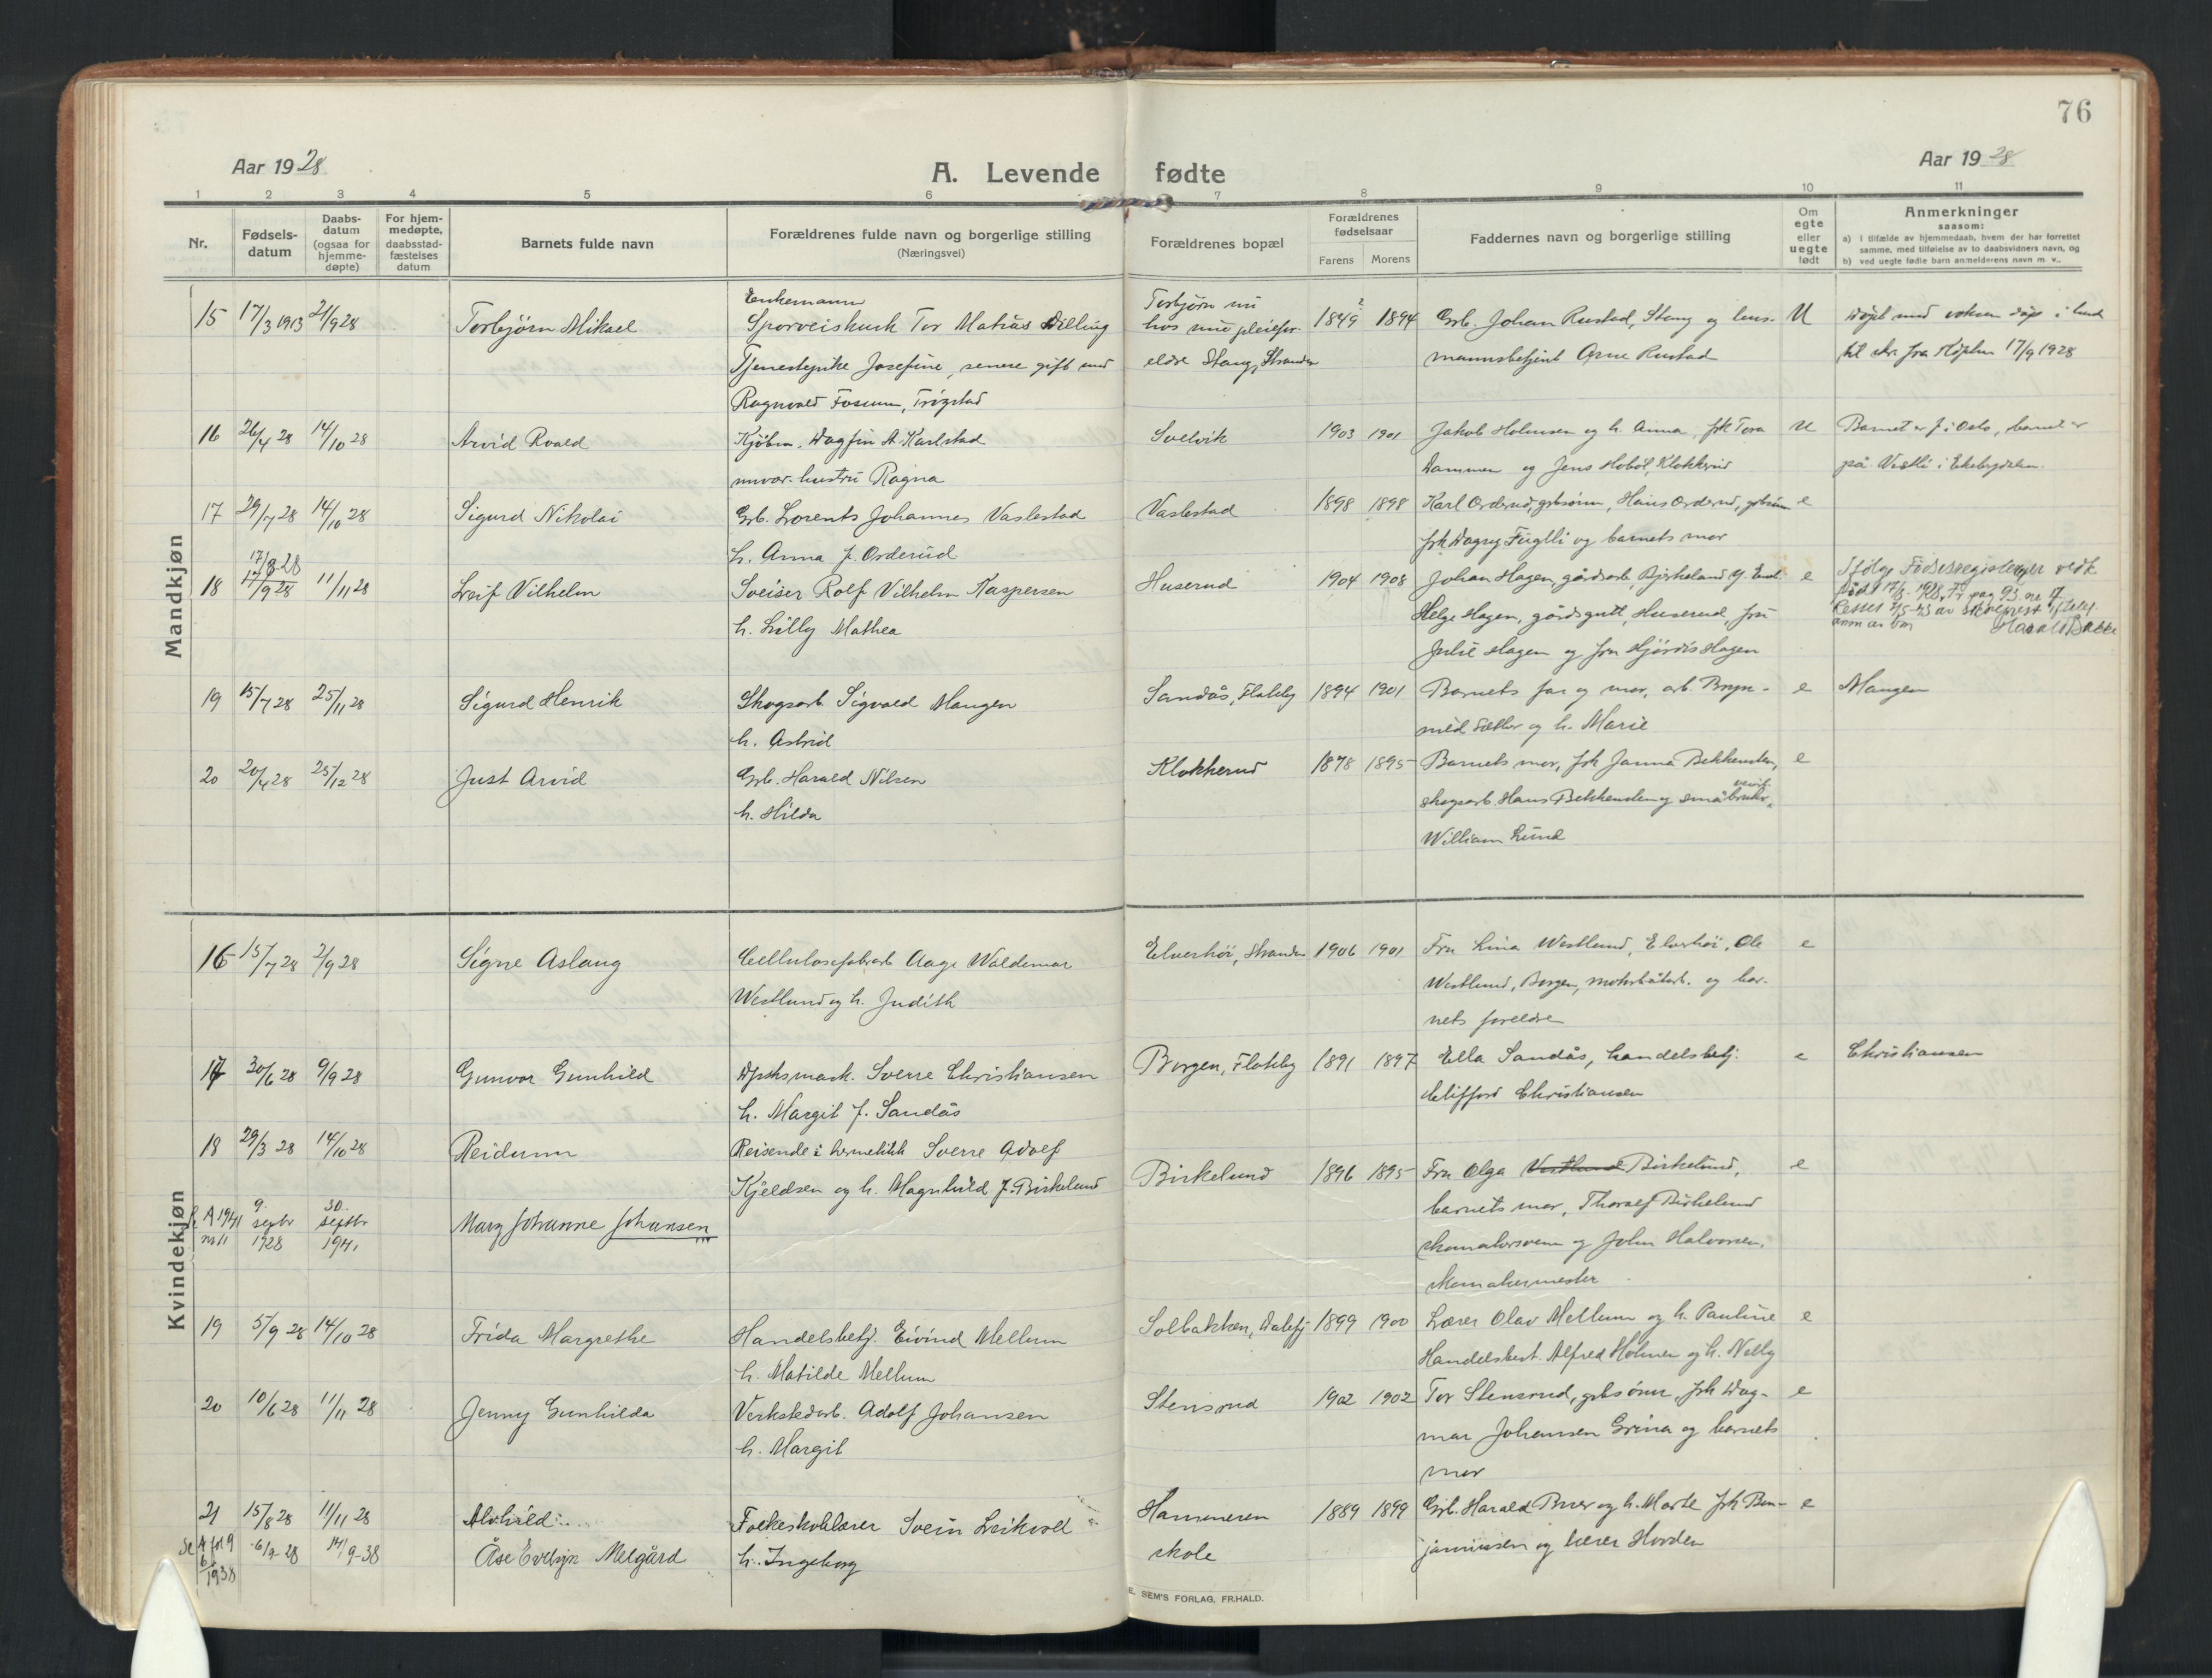 76
Aar 1928
A. Levende fødte
Aar 1928
1 2 3 4 5 6 7 8 9 10 11
Nr.
Fødsels-
datum
Daabs-
datum
(ogsaa for
hjemme-
døpte)
For hjem-
medøpte,
daabsstad-
fæstelses
datum
Barnets fulde navn
Forældrenes fulde navn og borgerlige stilling
(Næringsvei)
Forældrenes bopæl
Forældrenes
fødselsaar
Farens Morens
Faddernes navn og borgerlige stilling
Om
egte
eller
uegte
født
Anmerkninger
saasom:
a) i tilfælde av hjemmedaab, hvem der har forrettet
samme, med tilføielse av to daabsvidners navn, og
b) ved uegte fødte barn anmelderens navn m. v..
Mandkjøn
15 17/3 1913 21/9 28 Torbjørn Mikael
Enkemann
Sporveiskusk Tor Matias Dilling
Tjenestepike Josefine, senere gift med
Ragnvald Fosum, Trøgstad
Torbjørn nu
hos sine pleiefor-
eldre Stang, Stranden
1849 1894
Grb. Johan Rustad, Stang og lens-
mannsbetjent Arne Rustad
U
døpt med voksen dåp i
17/9 1928
16 26/4 28 14/10 28 Arvid Roald
Kjøbm. Dagfin A. Karlstad
hustru Ragna
Solvik
1903 1901
Jakob Holmsen og h. Anna, frk Tora
Dammen og Jens Hobøl, Klokkerud
U
Barnet er f. i Oslo, barnet er
på Vestli i Enebygdalen.
17 29/7 28 14/10 28 Sigurd Nikolai
Grb. Lorents Johannes Vaslestad
h. Anna f. Orderud
Vaslestad
1898 1898
Karl Orderud, grbsønn, Hans Orderud, grbsønn
frk Dagny Fuglli og barnets mor
e
17/8-28
18 17/9 28 11/11 28 Leif Vilhelm
Sveiser Rolf Vilhelm Kaspersen
h. Lilly Mathea
Huserud
1904 1908
Johan Hagen, gårdsarb. Bjirkeland
Helge Hagen, gårdsgutt, Huserud, fru
Julie Hagen og fru Hjørdis Hagen
e
Ifølge Fødselsregisteret
født 17/8-1928, pag 93 nr 17
Harald Bakke
19 15/7 28 25/11 28 Sigurd Henrik
Skogsarb. Sigvald Mangen
h. Astrid
Sandås, Flateby
1894 1901
Barnets far og mor, arb. Bryn-
mild Sæther og h. Marie
e
Mangen
20 20/4 28 25/12 28 Just Arvid
Grb. Harald Nilsen
h. Hilda
Klokkerud
1878 1895
Barnets mor, frk Janna Bekkensten,
skogsarb. Hans Bekkensten og småbruker
William Lund
e
Kvindekjøn
16 15/7 28 2/9 28 Signe Aslaug
Cellulosefabrarb Aage Waldemar
Westlund og h. Judith
Elvershøi, Stranden
1906 1901
Fru Lina Westlund, Elvershøi, Ole
Westlund, Borgen, motorbåtarb. og bar-
nets foreldre
e
17 30/6 28 9/9 28 Gunvor Gunhild
Sverre Christiansen
h. Margit f. Sandås
Borgen, Flateby
1891 1897
Ella Sandås, handelsbetj.
Clifford Christiansen
e
Christiansen
18 29/3 28 14/10 28 Reidunn
Reisende i hermetikk Sverre Adolf
Kjeldsen og h. Magnhild f. Birkelund
Birkelund
1896 1895
Fru Olga Vestlund Birkelund,
barnets mor, Thoralf Birkelund
skomakersvenn og John Halvorsen,
skomakermester
e
A 1941
nr 11
9.
septbr
1928
30.
septbr
1941
Mary Johanne Johansen
19 5/9 28 14/10 28 Frida Margrethe
Handelsbetj. Eivind Mellum
h. Matilde Mellum
Solbakken, Dalefj
1899 1900
Lærer Olav Mellum og h. Pauline
Handelsbest. Alfred Holmen og h. Nelly
e
20 10/6 28 11/11 28 Jenny Gunhilda
Verkstedarb. Adolf Johansen
h. Margit
Stensrud
1902 1902
Tor Stensrud, grbsønn, frk Dag-
mar Johansen Grina og barnets
mor
e
21 15/8 28 11/11 28 Alvhild
Folkeskolelærer Svein Leikvoll
h. Ingeborg
Hammeren
skole
1889 1899
Grb. Harald Buer og h. Marte, frk Ben-
jaminsen og lærer Hovden
e
Se A fol 9
6/1938
6/9 28 14/9-38 Åse Evelyn Melgård
E. SEM'S FORLAG, FR.HALD.